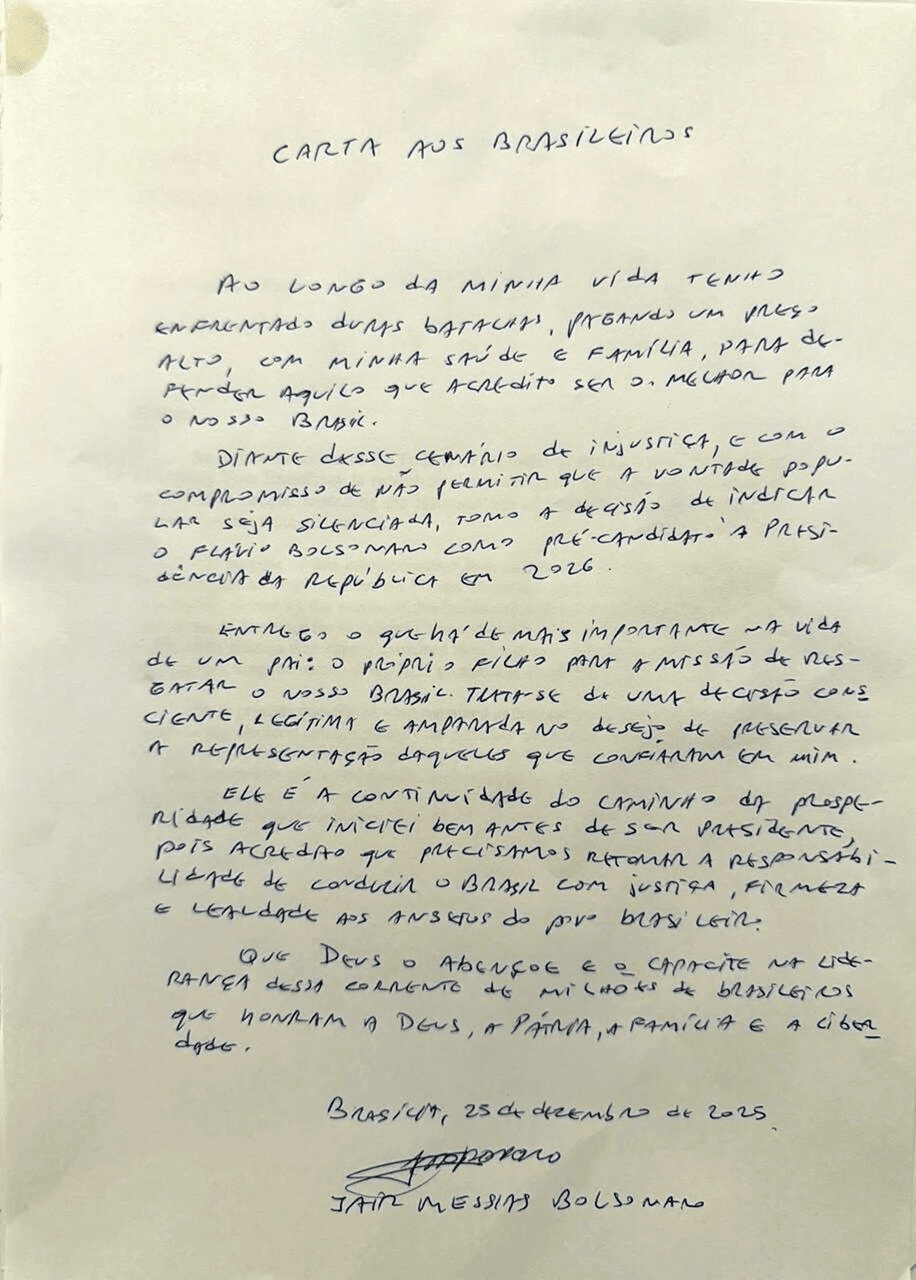 CARTA AOS BRASILEIROS
AO LONGO DA MINHA VIDA TENHO
ENFRENTADO DURAS BATALHAS, PAGANDO UM PREÇO
ALTO, COM MINHA SAÚDE E FAMÍLIA, PARA DE-
FENDER AQUILO QUE ACREDITO SER O MELHOR PARA
O NOSSO BRASIL.
DIANTE DESSE CENÁRIO DE INJUSTIÇA, E COM O
COMPROMISSO DE NÃO PERMITIR QUE A VONTADE POPU-
LAR SEJA SILENCIADA, TOMO A DECISÃO DE INDICAR
O FLÁVIO BOLSONARO COMO PRÉ-CANDIDATO À PRESI-
DÊNCIA DA REPÚBLICA EM 2026.
ENTREGO O QUE HÁ DE MAIS IMPORTANTE NA VIDA
DE UM PAI: O PRÓPRIO FILHO PARA A MISSÃO DE RES-
GATAR O NOSSO BRASIL. TRATA-SE DE UMA DECISÃO CONS
CIENTE, LEGÍTIMA E AMPARADA NO DESEJO DE PRESERVAR
A REPRESENTAÇÃO DAQUELES QUE CONFIARAM EM MIM.
ELE É A CONTINUIDADE DO CAMINHO DA PROSPE-
RIDADE QUE INICIEI BEM ANTES DE SER PRESIDENTE,
POIS ACREDITO QUE PRECISAMOS RETOMAR A RESPONSABI-
LIDADE DE CONDUZIR O BRASIL COM JUSTIÇA, FIRMEZA
E LEALDADE AOS ANSEIOS DO POVO BRASILEIRO.
QUE DEUS O ABENÇOE E O CAPACITE NA LIDE-
RANÇA DESSA CORRENTE DE MILHÕES DE BRASILEIROS
QUE HONRAM A DEUS, A PÁTRIA, A FAMÍLIA E A LIBER
DADE.
BRASÍLIA, 25 DE DEZEMBRO DE 2025.
JAIR MESSIAS BOLSONARO